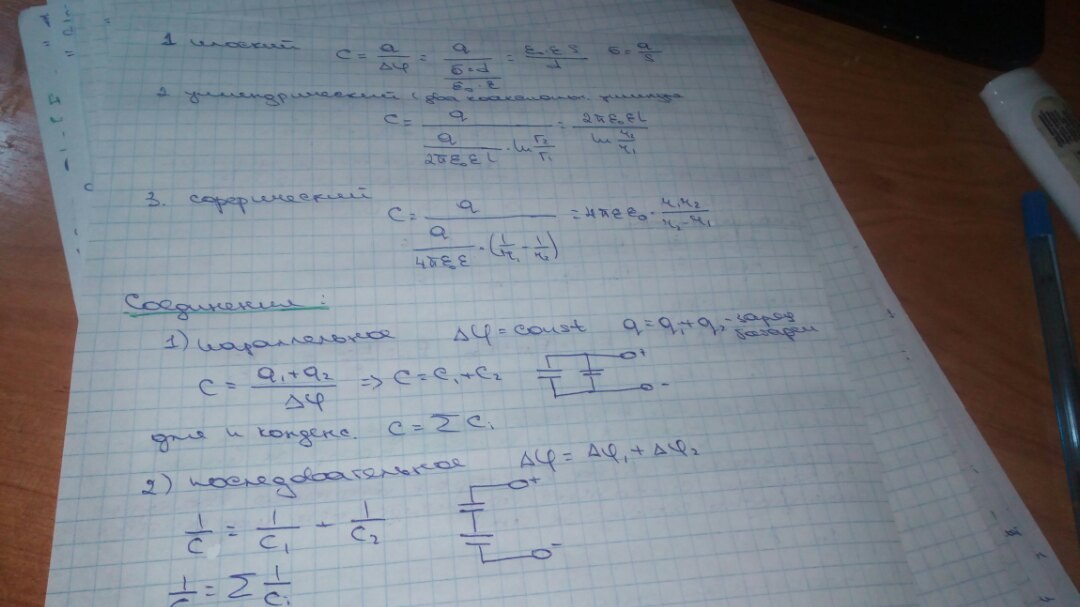 1 плоский C = q/Δφ = q/(σ·d/ε₀·ε) = ε₀·ε S/d σ = q/S
2 цилиндрический (два коаксиальн. цилиндра
C = q/(q/2πε₀ε l · ln r₂/r₁) = 2πε₀ε l/ln r₂/r₁
3. сферический C = q/(q/4πε₀ε · (1/r₁ - 1/r₂)) = 4πεε₀ · r₁r₂/r₂-r₁
Соединения:
1) параллельное Δφ = const q = q₁ + q₂ - заряд батареи
C = q₁+q₂/Δφ => C = C₁ + C₂ + -
для n конденс. C = Σ Cᵢ
2) последовательное Δφ = Δφ₁ + Δφ₂
1/C = 1/C₁ + 1/C₂ + -
1/C = Σ 1/Cᵢ